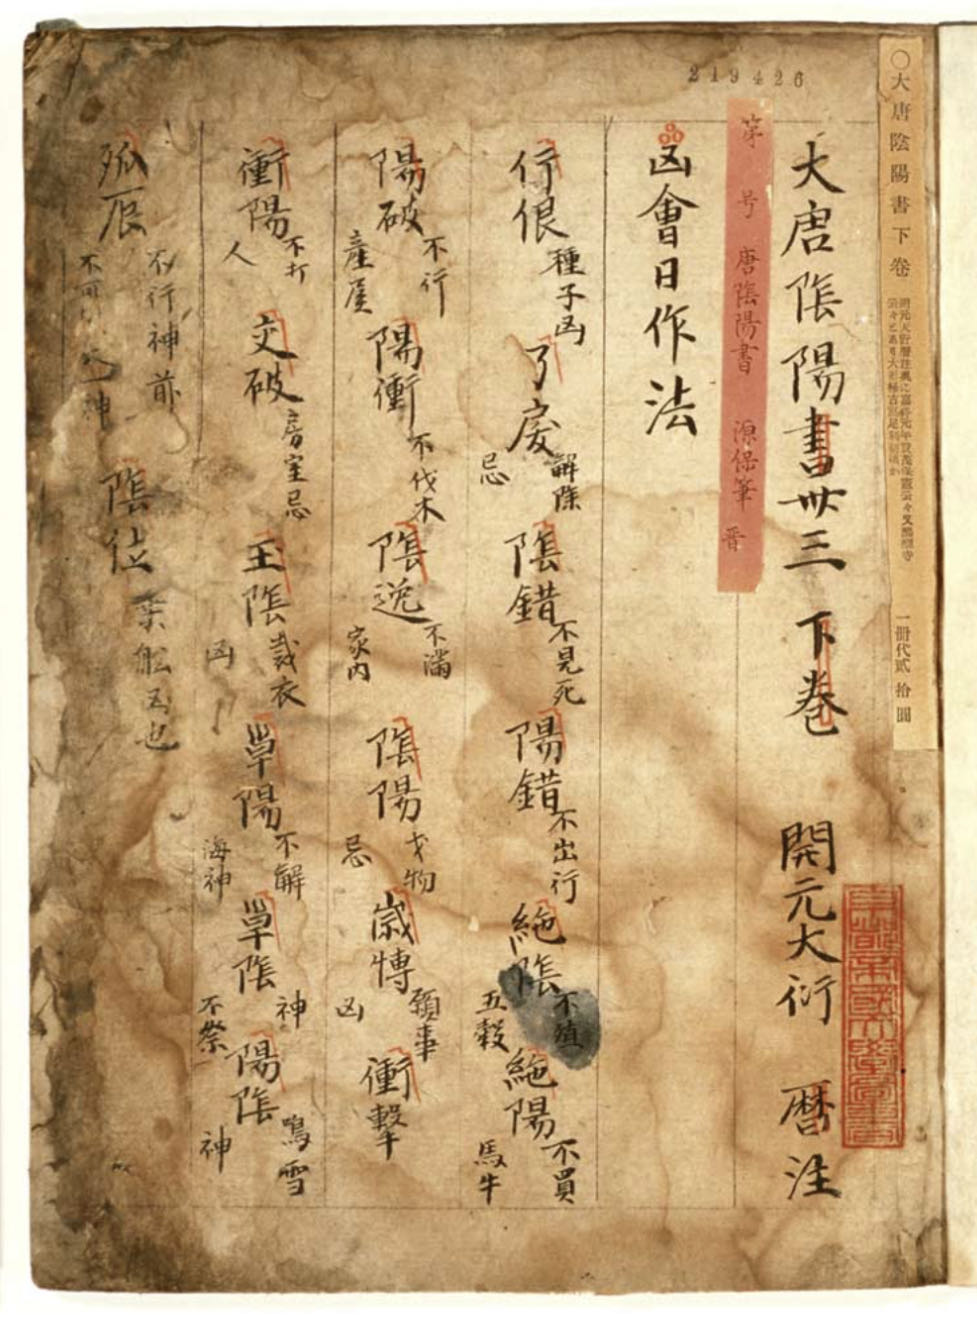 219426
○大唐陰陽書下卷
一冊代貳拾圓
大唐陰陽書卅三 下卷 開元大衍 暦注
第 号 唐陰陽書 源保筆 晋
凶會日作法
行佷 種子凶 了戾 解除忌 陰錯 不見死 陽錯 不出行 絶陰 不殖五穀 絶陽 不買馬牛
陽破 不行産屋 陽衝 不伐木 陰逆 不満家内 陰陽 物忌 歳博 領事凶 衝撃
衝陽 不打人 交破 房室忌 王陰 裁衣凶 単陽 不解海神 単陰 神不祭 陽陰 鳴雪神
孤辰 不行神前 陰位 乗船